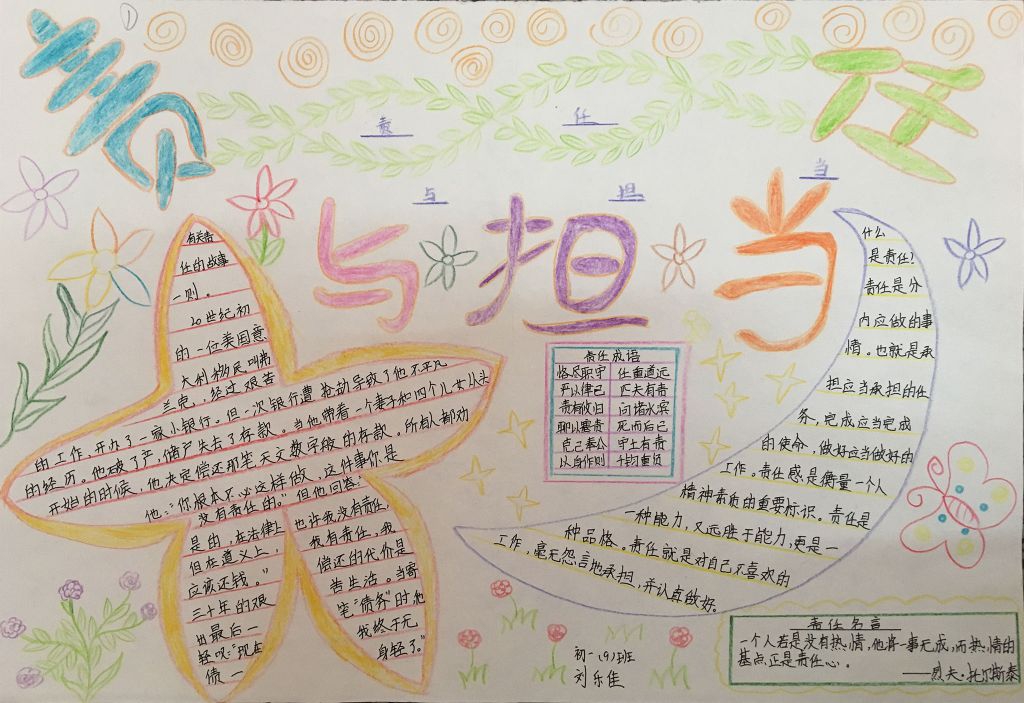 ①
责任
责任
与担当
与担当
有关责
任的故事
一则。
20世纪初
的一位美国意
大利移民叫弗
兰克,经过艰苦
的工作,开办了一家小银行。但一次银行遭抢劫导致了他不平凡
的经历。他破了产,储户失去了存款。当他带着一个妻子和四个儿女从头
开始的时候,他决定偿还那笔天文数字般的存款。所有人都劝
他:“你根本不必这样做,这件事你是
没有责任的。”但他回答:“
是的,在法律上 也许我没有责任,
但在道义上, 我有责任,我
应该还钱。” 偿还的代价是
三十年的艰 苦生活。当寄
出最后一 笔“债务”时,他
轻叹:“现在 我终于无
债一 身轻了。”
责任成语
恪尽职守 任重道远
严以律己 匹夫有责
责有攸归 问诸水滨
聊以塞责 死而后已
克己奉公 守土有责
以身作则 千钧重负
什么
是责任?
责任是分
内应做的事
情。也就是承
担应当承担的任
务,完成应当完成
的使命,做好应当做好的
工作。责任感是衡量一个人
精神素质的重要标识。责任是
一种能力,又远胜于能力,更是一
种品格。责任就是对自己不喜欢的
工作,毫无怨言地承担,并认真做好。
责任名言
一个人若是没有热情,他将一事无成,而热情的
基点正是责任心。
——列夫·托尔斯泰
初一(9)班
刘乐佳